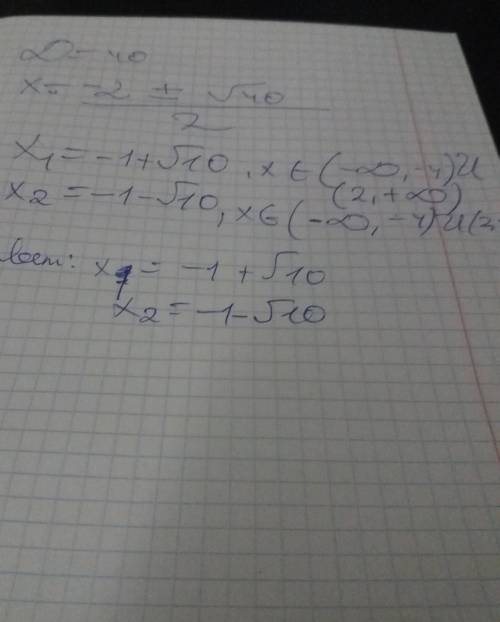 D=40
x= -2 ± √40 / 2
x₁ = -1+√10, x ∈ (-∞, -4) U (2, +∞)
x₂ = -1-√10, x ∈ (-∞, -4) U (2,
вет: x₁ = -1 + √10
x₂ = -1-√10